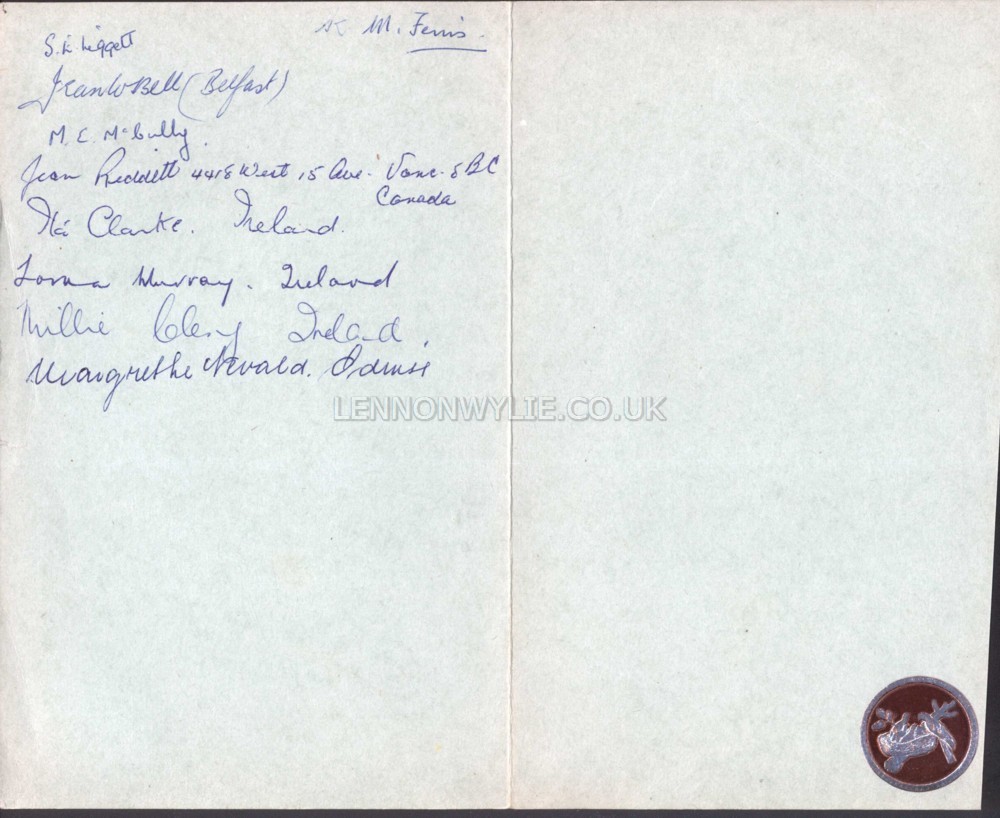 M. Ferris.
S. E. Liggett
Jean W Bell (Belfast)
M. E. McCully.
Jean Reddett 4418 West 15 Ave. Vanc. 8 BC
Canada
Ita Clarke. Ireland.
Lorna Murray. Ireland
Millie Clery Ireland.
Margrethe Nevald. Odense
LENNONWYLIE.CO.UK